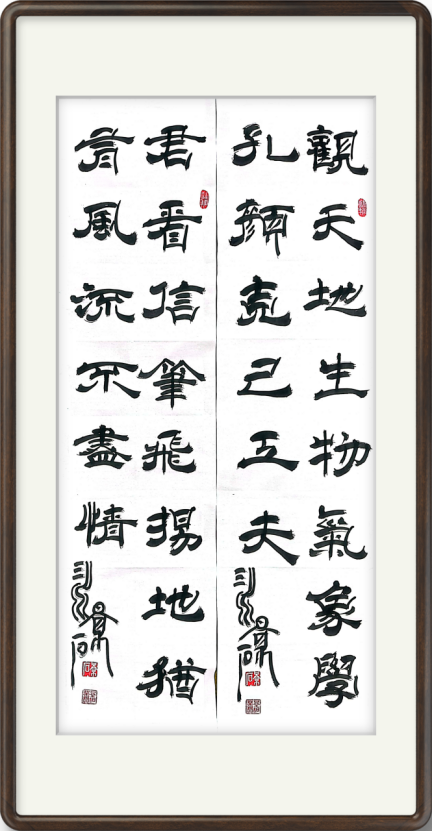 觀天地生物氣象學
孔顏克己工夫
君看信筆飛揚地猶
有風流不盡情